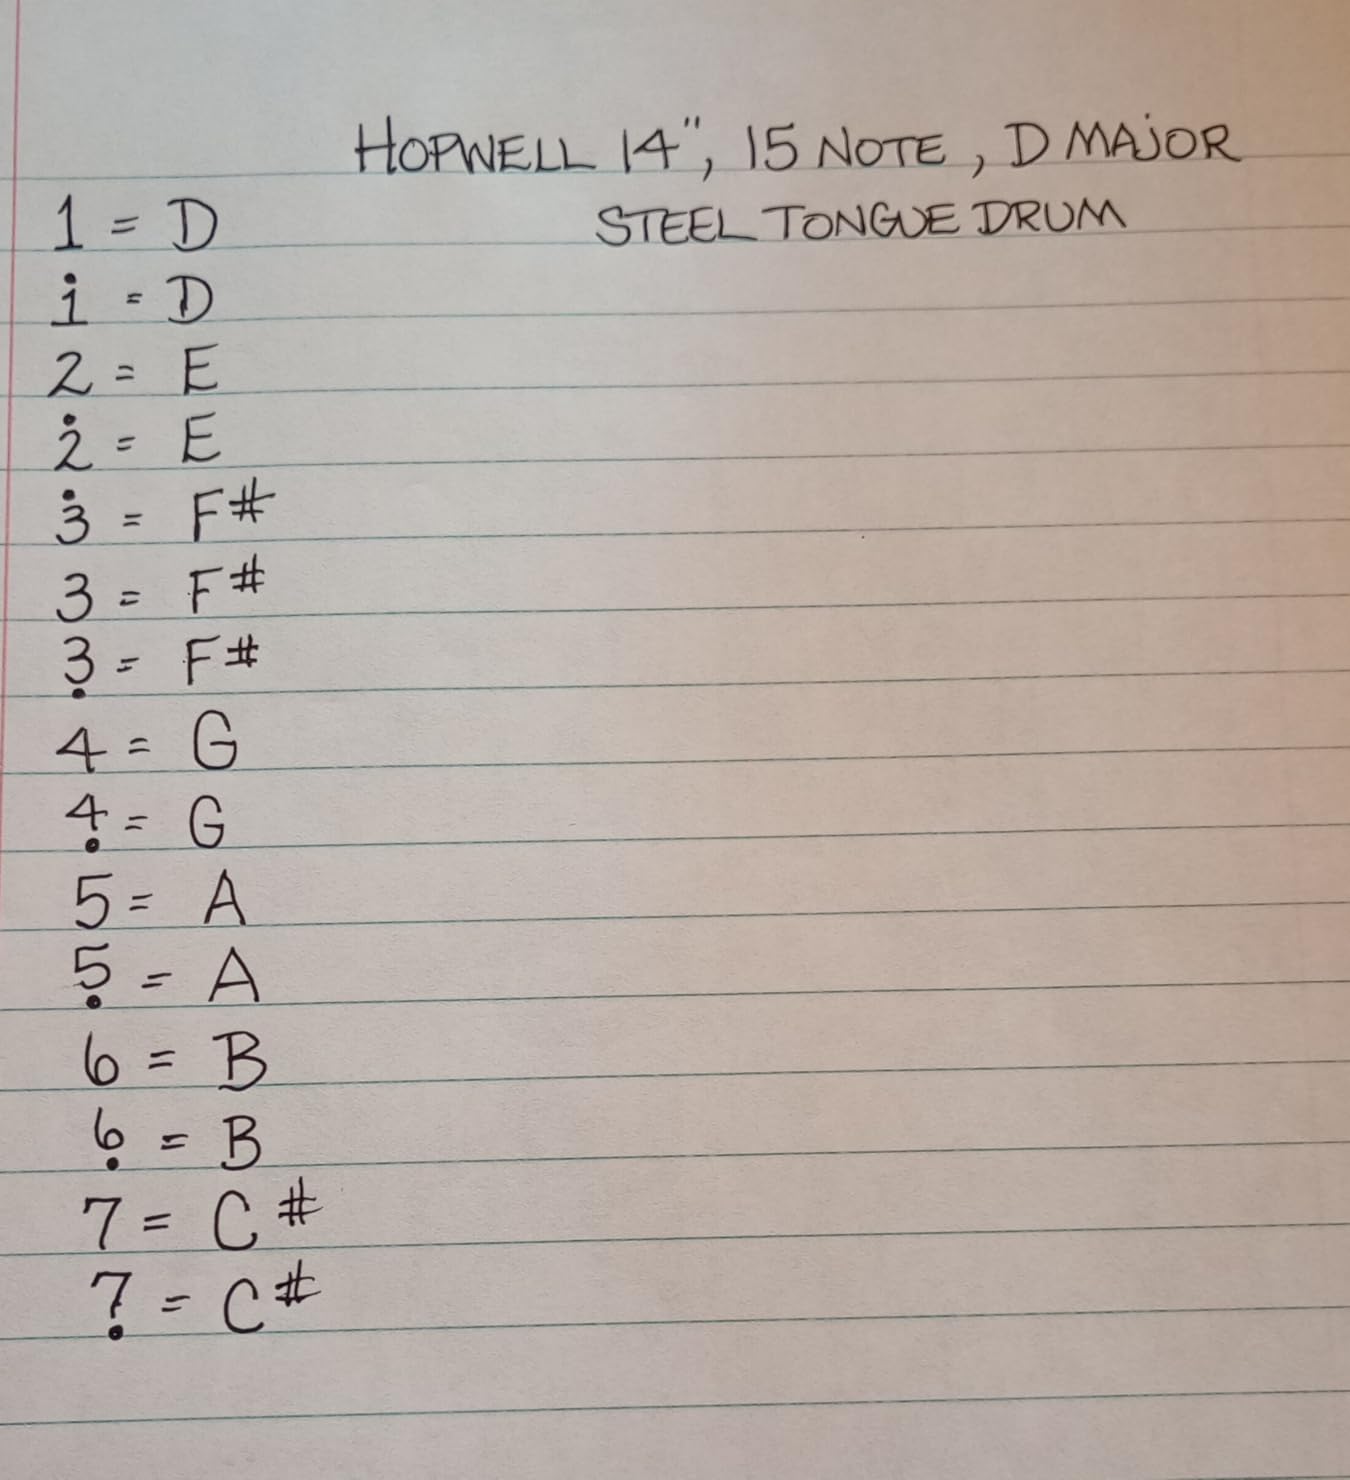 HOPWELL 14", 15 NOTE, D MAJOR
STEEL TONGUE DRUM
1 = D
1̇ = D
2 = E
2̇ = E
3̇ = F#
3 = F#
3̣ = F#
4 = G
4̣ = G
5 = A
5̣ = A
6 = B
6̣ = B
7 = C#
7̣ = C#